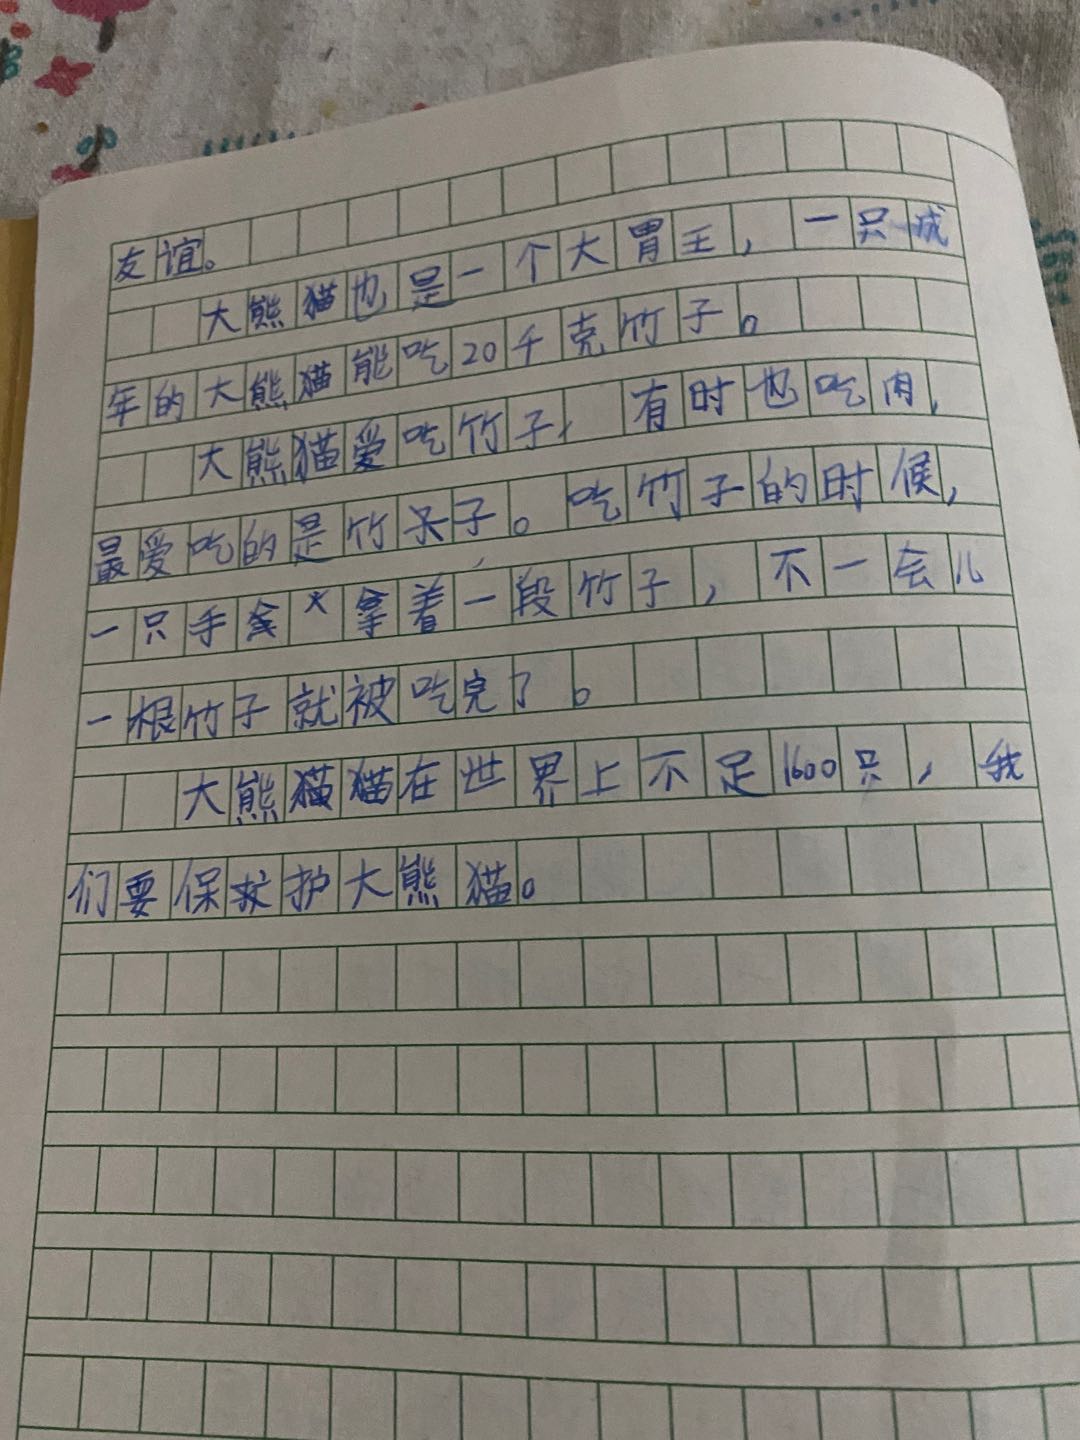 友谊。
大熊猫也是一个大胃王，一只成
年的大熊猫能吃20千克竹子。
大熊猫爱吃竹子，有时也吃肉，
最爱吃的是竹子。吃竹子的时候，
一只手拿着一段竹子，不一会儿
一根竹子就被吃完了。
大熊猫猫在世界上不足1600只，我
们要保救护大熊猫。